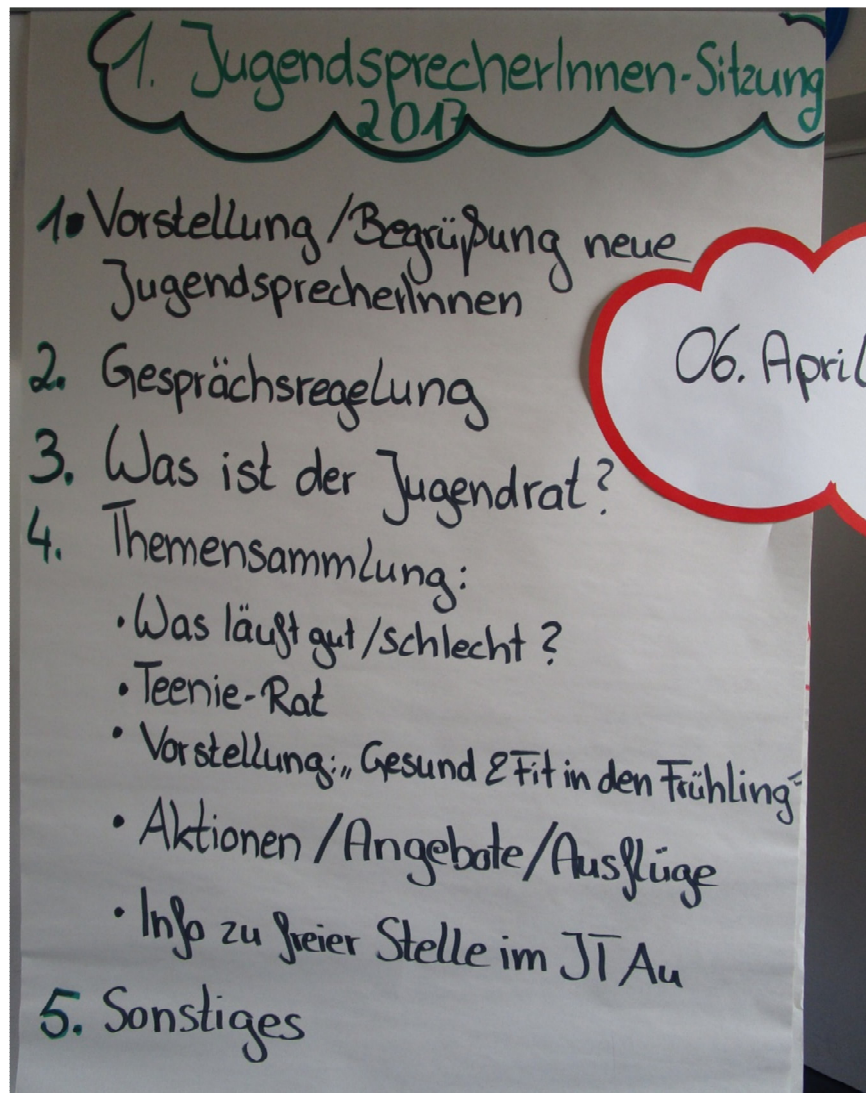 1. JugendsprecherInnen-Sitzung
2017
1. Vorstellung/Begrüßung neue
JugendsprecherInnen
06. April
2. Gesprächsregelung
3. Was ist der Jugendrat?
4. Themensammlung:
• Was läuft gut/schlecht?
• Teenie-Rat
• Vorstellung: „Gesund & Fit in den Frühling“
• Aktionen/Angebote/Ausflüge
• Info zu freier Stelle im JT Au
5. Sonstiges